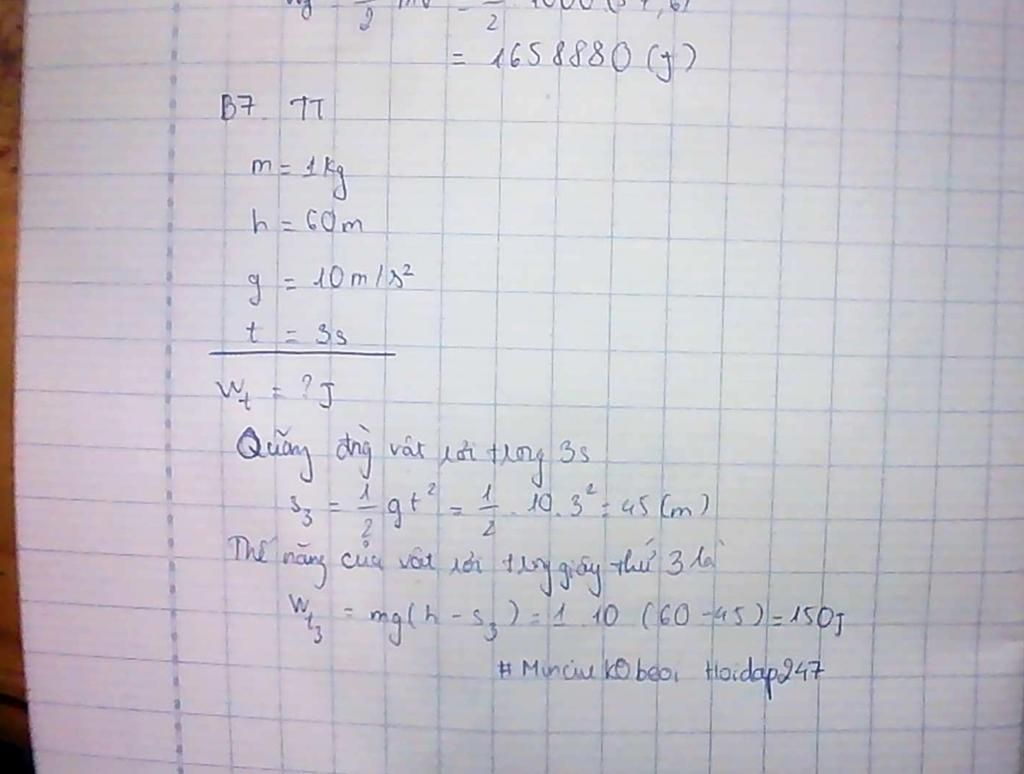 1/2 mv = 1/2 1000 (57,6)
= 1658880 (J)
B7. TT
m = 1kg
h = 60m
g = 10m/s²
t = 3s
Wt = ? J
Quãng đg vật rơi trong 3s
s₃ = 1/2 gt² = 1/2 . 10. 3² = 45 (m)
Thế năng của vật rơi trong giây thứ 3 là
Wt₃ = mg(h - s₃) = 1 10 (60 - 45) = 150J
Hoidap247